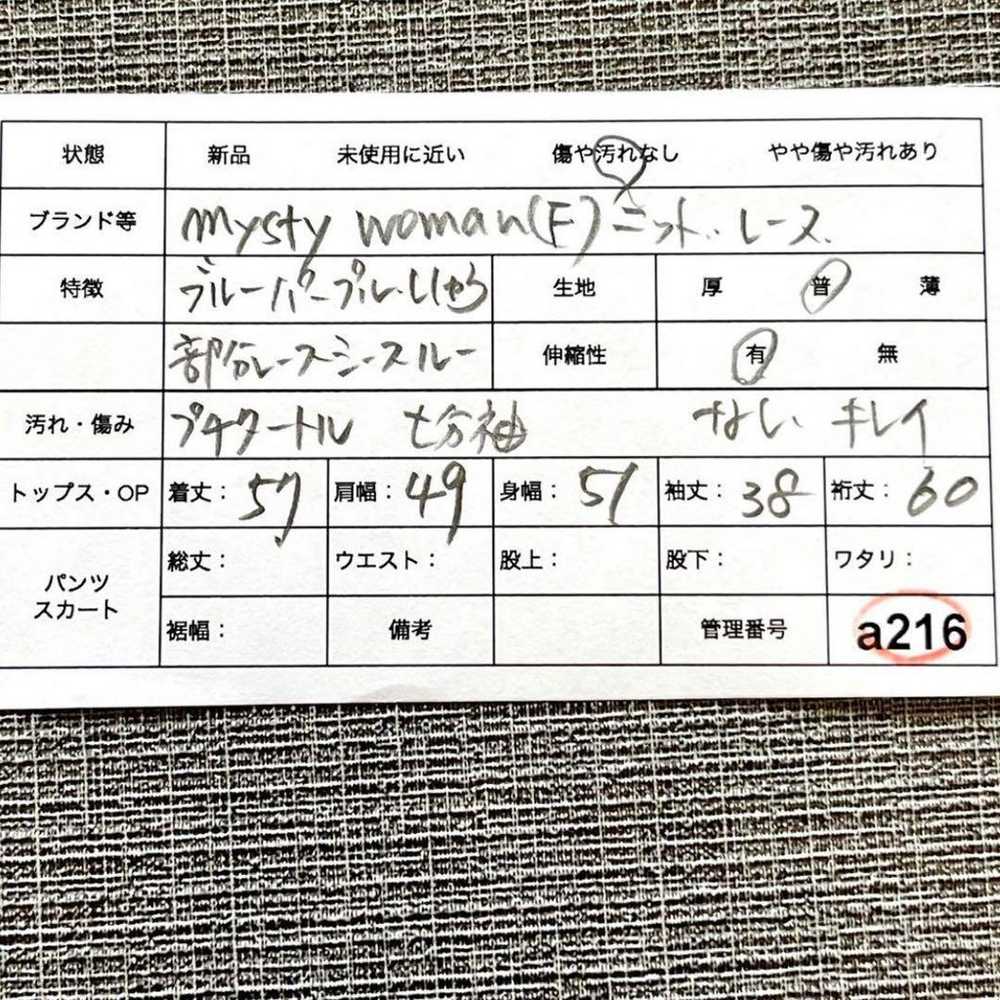 状態 新品 未使用に近い 傷や汚れなし やや傷や汚れあり
ブランド等 mysty woman(F) ニット レース
特徴 ブルーパープル 生地 厚 普 薄
部分レースシースルー 伸縮性 有 無
汚れ・傷み プチタートル 七分袖 ない キレイ
トップス・OP 着丈: 57 肩幅: 49 身幅: 51 袖丈: 38 裄丈: 60
パンツ スカート 総丈: ウエスト: 股上: 股下: ワタリ:
裾幅: 備考 管理番号 a216